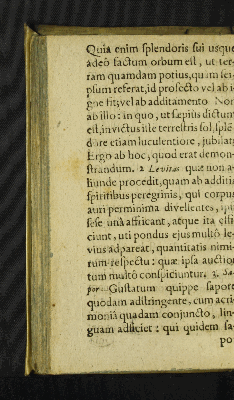 Quia enim splendoris sui usque
adeò factum orbum est, ut ter-
ram quamdam potius, quàm
plum referat, id profectò vel ab i-
gne fit; vel ab additamento. Non
ab illo: in quo, ut sæpius dictum
est, invictus ille terrestris sol, splē
dore etiam luculentiore, jubilat
Ergo ab hoc, quod erat demon-
strandum. 2 Levitas quæ non a-
liunde procedit, quam ab additis
spiritibus peregrinis, qui corpus
auri per minima divellentes,
sese unà afficant, atque ita
ciunt, uti pondus ejus multò le-
vius adpareat, quantitatis nimi-
rum respectu: quæ ipsa auctior
tum multò conspiciuntur. 3. Sa-
por. Gustatum quippe sapore
quodam adstringente, cum acri-
moniâ quadam conjuncto, lin-
guam adficiet: qui quidem sa-
po